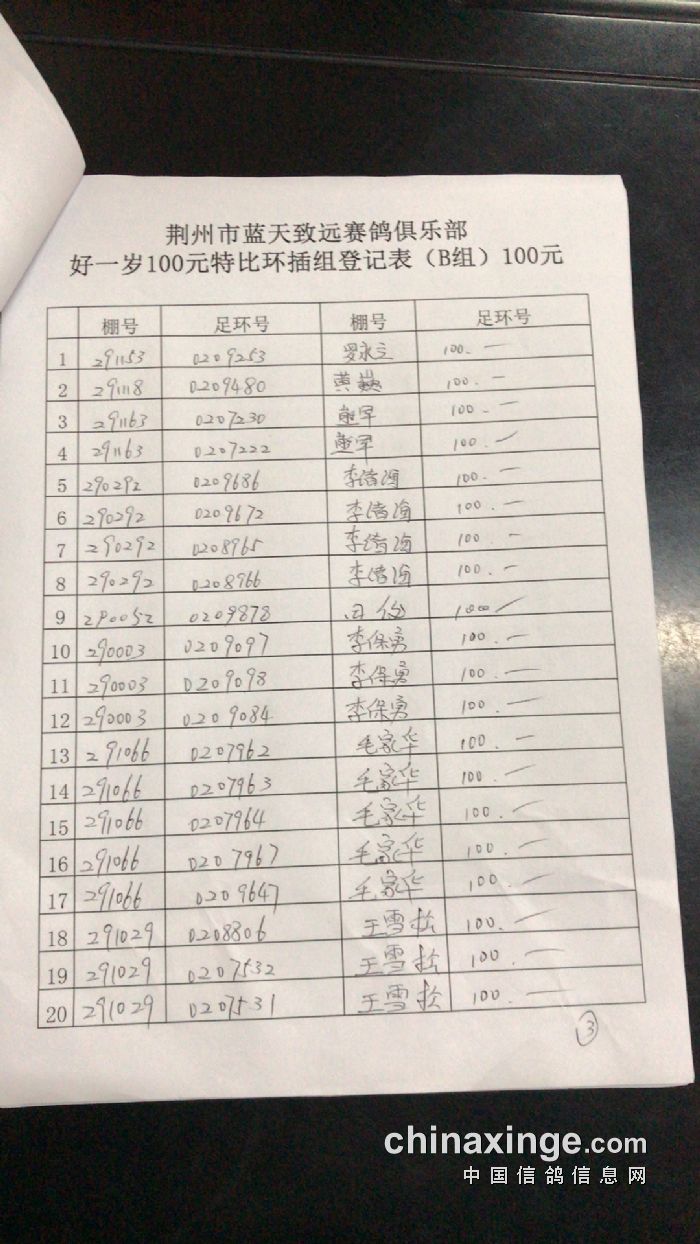 荆州市蓝天致远赛鸽俱乐部
好一岁100元特比环插组登记表（B组）100元
棚号 足环号 棚号 足环号
1 291153 0209253 罗永立 100.一
2 291118 0209480 黄巍 100.一
3 291163 0207230 100.一
4 291163 0207222 100.一
5 290292 0209686 李清海 100.一
6 290292 0209672 李清海 100.一
7 290292 0208965 李清海 100.一
8 290292 0208966 李清海 100.一
9 290052 0209878 100
10 290003 0209097 李保勇 100.一
11 290003 0209098 李保勇 100.一
12 290003 0209084 李保勇 100.一
13 291066 0207962 毛家华 100.一
14 291066 0207963 毛家华 100.一
15 291066 0207964 毛家华 100.一
16 291066 0207967 毛家华 100.一
17 291066 0209647 毛家华 100.一
18 291029 0208806 王雪松 100.一
19 291029 0207532 王雪松 100.一
20 291029 0207531 王雪松 100.一
③
chinaxinge.com
中国信鸽信息网